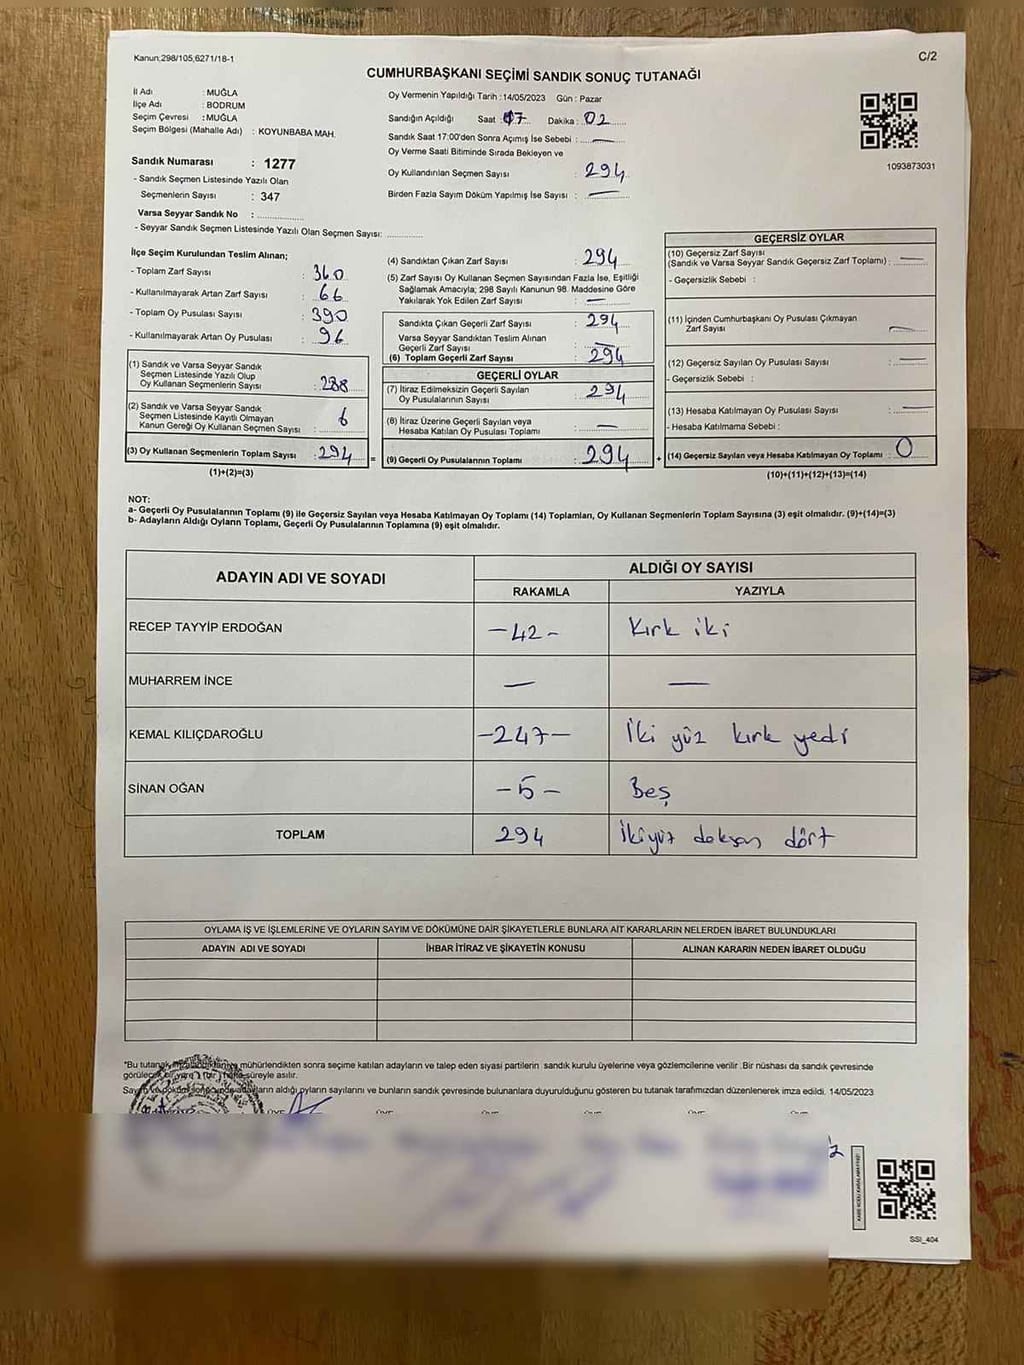 Kanun,298/105,6271/18-1
C/2
CUMHURBAŞKANI SEÇİMİ SANDIK SONUÇ TUTANAĞI
İl Adı : MUĞLA
İlçe Adı : BODRUM
Seçim Çevresi : MUĞLA
Seçim Bölgesi (Mahalle Adı) : KOYUNBABA MAH.
Sandık Numarası : 1277
- Sandık Seçmen Listesinde Yazılı Olan
Seçmenlerin Sayısı : 347
Varsa Seyyar Sandık No : ..............
- Seyyar Sandık Seçmen Listesinde Yazılı Olan Seçmen Sayısı: ............
Oy Vermenin Yapıldığı Tarih : 14/05/2023 Gün : Pazar
Sandığın Açıldığı Saat : 17 Dakika : 02
Sandık Saat 17:00'den Sonra Açımış İse Sebebi : —
Oy Verme Saati Bitiminde Sırada Bekleyen ve
Oy Kullandırılan Seçmen Sayısı : 294
Birden Fazla Sayım Döküm Yapılmış İse Sayısı : —
1093873031
İlçe Seçim Kurulundan Teslim Alınan;
- Toplam Zarf Sayısı : 360
- Kullanılmayarak Artan Zarf Sayısı : 66
- Toplam Oy Pusulası Sayısı : 390
- Kullanılmayarak Artan Oy Pusulası : 96
(1) Sandık ve Varsa Seyyar Sandık
Seçmen Listesinde Yazılı Olup
Oy Kullanan Seçmenlerin Sayısı : 288
(2) Sandık ve Varsa Seyyar Sandık
Seçmen Listesinde Kayıtlı Olmayan
Kanun Gereği Oy Kullanan Seçmen Sayısı : 6
(3) Oy Kullanan Seçmenlerin Toplam Sayısı : 294
(1)+(2)=(3)
(4) Sandıktan Çıkan Zarf Sayısı : 294
(5) Zarf Sayısı Oy Kullanan Seçmen Sayısından Fazla İse, Eşitliği
Sağlamak Amacıyla; 298 Sayılı Kanunun 98. Maddesine Göre
Yakılarak Yok Edilen Zarf Sayısı : —
Sandıkta Çıkan Geçerli Zarf Sayısı : 294
Varsa Seyyar Sandıktan Teslim Alınan
Geçerli Zarf Sayısı : —
(6) Toplam Geçerli Zarf Sayısı : 294
GEÇERLİ OYLAR
(7) İtiraz Edilmeksizin Geçerli Sayılan
Oy Pusulalarının Sayısı : 294
(8) İtiraz Üzerine Geçerli Sayılan veya
Hesaba Katılan Oy Pusulası Toplamı : —
= (9) Geçerli Oy Pusulalarının Toplamı : 294 +
GEÇERSİZ OYLAR
(10) Geçersiz Zarf Sayısı
(Sandık ve Varsa Seyyar Sandık Geçersiz Zarf Toplamı) : —
- Geçersizlik Sebebi :
(11) İçinden Cumhurbaşkanı Oy Pusulası Çıkmayan
Zarf Sayısı : —
(12) Geçersiz Sayılan Oy Pusulası Sayısı : —
- Geçersizlik Sebebi :
(13) Hesaba Katılmayan Oy Pusulası Sayısı : —
- Hesaba Katılmama Sebebi :
(14) Geçersiz Sayılan veya Hesaba Katılmayan Oy Toplamı : 0
(10)+(11)+(12)+(13)=(14)
NOT:
a- Geçerli Oy Pusulalarının Toplamı (9) ile Geçersiz Sayılan veya Hesaba Katılmayan Oy Toplamı (14) Toplamları, Oy Kullanan Seçmenlerin Toplam Sayısına (3) eşit olmalıdır. (9)+(14)=(3)
b- Adayların Aldığı Oyların Toplamı, Geçerli Oy Pusulalarının Toplamına (9) eşit olmalıdır.
ADAYIN ADI VE SOYADI
ALDIĞI OY SAYISI
RAKAMLA YAZIYLA
RECEP TAYYİP ERDOĞAN -42- Kırk iki
MUHARREM İNCE — —
KEMAL KILIÇDAROĞLU -247- İki yüz kırk yedi
SİNAN OĞAN -5- Beş
TOPLAM 294 İkiyüz doksan dört
OYLAMA İŞ VE İŞLEMLERİNE VE OYLARIN SAYIM VE DÖKÜMÜNE DAİR ŞİKAYETLERLE BUNLARA AİT KARARLARIN NELERDEN İBARET BULUNDUKLARI
ADAYIN ADI VE SOYADI İHBAR İTİRAZ VE ŞİKAYETİN KONUSU ALINAN KARARIN NEDEN İBARET OLDUĞU
*Bu tutanak mühürlendikten sonra seçime katılan adayların ve talep eden siyasi partilerin sandık kurulu üyelerine veya gözlemcilerine verilir. Bir nüshası da sandık çevresinde
görülecek süreyle asılır.
aldığı oyların sayılarını ve bunların sandık çevresinde bulunanlara duyurulduğunu gösteren bu tutanak tarafımızdan düzenlenerek imza edildi. 14/05/2023
SSI_404